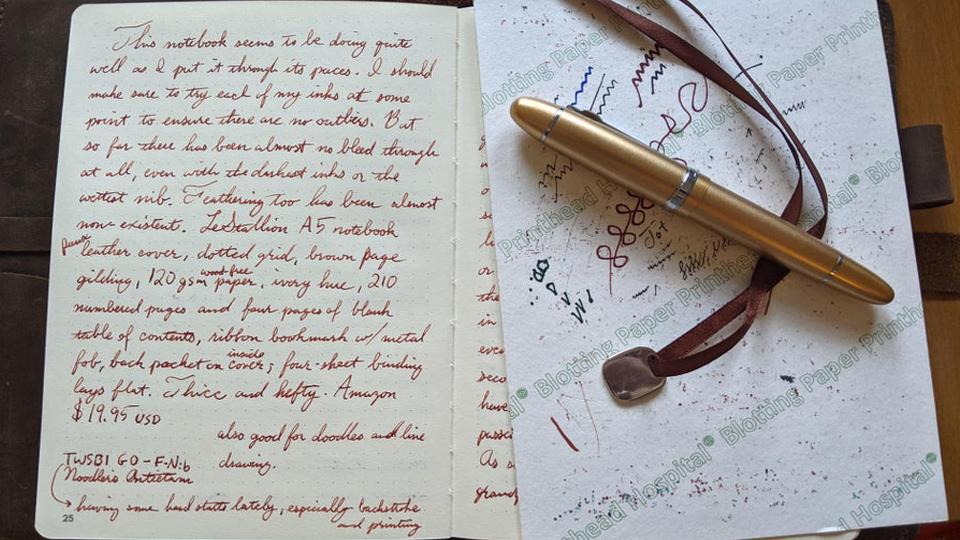 This notebook seems to be doing quite
well as I put it through its paces. I should
make sure to try each of my inks at some
point to ensure there are no outliers. But
so far there has been almost no bleed through
at all, even with the darkest inks or the
wettest nib. Feathering too has been almost
non-existent. LeStallion A5 notebook
faux
leather cover, dotted grid, brown page
wood-free
gilding, 120gsm paper, ivory hue, 210
numbered pages and four pages of blank
table of contents, ribbon bookmark w/ metal
inside
fob, back pocket on cover; four-sheet binding
lays flat. Thicc and hefty. Amazon
$19.95 USD
also good for doodles and line
drawing.
TWSBI GO - F-Nib
Noodler's Antietam
having some hard starts lately, especially backstroke
and printing
25
Blotting Paper Printhead
Blotting Paper Printh
Printhead Hospital
Jot
Blotting Paper Printhead
Blotting Paper Printh
thead Hospital® Blotting Paper
Hospital®